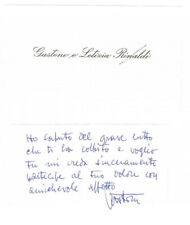 Gastone e Letizia Rinaldi
Ho saputo del grave lutto
che ti ha colpito e voglio
tu mi creda sinceramente
partecipe al tuo dolore con
amichevole affetto